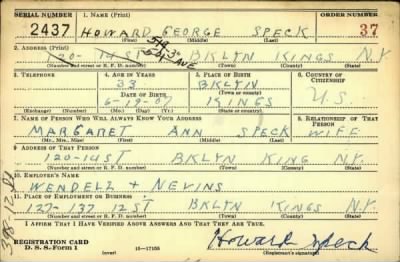 SERIAL NUMBER 1. NAME (Print) ORDER NUMBER
2437 HOWARD GEORGE SPECK 37
(First) (Middle) (Last)
2. ADDRESS (Print) 519-3 AVE
120- 14 ST BKLYN KINGS N.Y.
(Number and street or R. F. D. number) (Town) (County) (State)
3. TELEPHONE 4. AGE IN YEARS 5. PLACE OF BIRTH 6. COUNTRY OF CITIZENSHIP
33 BKLYN
DATE OF BIRTH (Town or county) U.S.
6-19-07 KINGS
(Exchange) (Number) (Mo.) (Day) (Yr.) (State or country)
7. NAME OF PERSON WHO WILL ALWAYS KNOW YOUR ADDRESS 8. RELATIONSHIP OF THAT PERSON
MARGARET ANN SPECK WIFE
(Mr., Mrs., Miss) (First) (Middle) (Last)
9. ADDRESS OF THAT PERSON
120-14 ST BKLYN KING N.Y.
(Number and street or R. F. D. number) (Town) (County) (State)
10. EMPLOYER'S NAME
WENDELL + NEVINS
11. PLACE OF EMPLOYMENT OR BUSINESS
127-137 12 ST BKLYN KINGS N.Y.
(Number and street or R. F. D. number) (Town) (County) (State)
I AFFIRM THAT I HAVE VERIFIED ABOVE ANSWERS AND THAT THEY ARE TRUE.
REGISTRATION CARD
D. S. S. Form 1 (over) 16-17105 Howard Speck
(Registrant's signature)